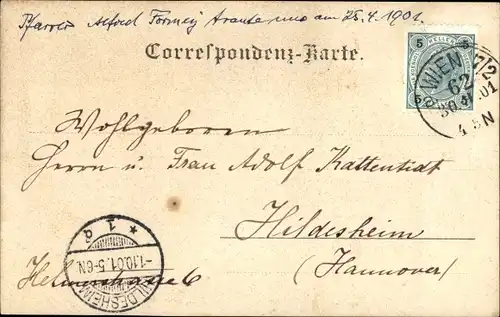 Pfarrer Alfred Formey traute uns am 25.4.1901.
Correspondenz-Karte.
5 HELLER 5
WIEN
7/2
62
30.
.01
4
N
Wohlgeboren
Herrn u. Frau Adolf Kattentidt
Hildesheim
(Hannover)
HILDESHEIM
* 1
-1.10.01.5-6N
6